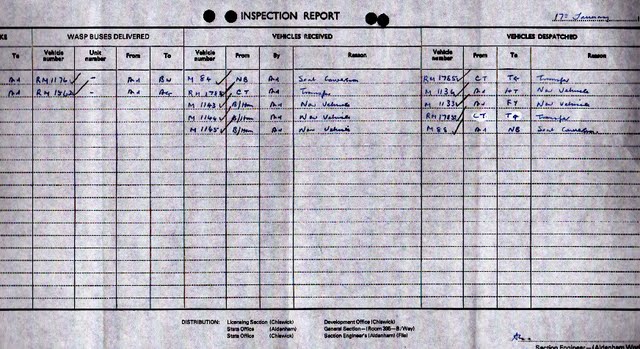 INSPECTION REPORT 17th January
KS WASP BUSES DELIVERED VEHICLES RECEIVED VEHICLES DESPATCHED
To Vehicle number Unit number From To Vehicle number From By Reason Vehicle number From To Reason
Ad RM 1174 - Ad BW M 84 NB Ad Seat Conversion CT T4 Transfer
Ad - Ad CT Ad Transfer M 1134 Ad New Vehicle
M 1143 B/Ham Ad New Vehicle M 1133 Ad FT New Vehicle
M 1144 B/Ham Ad New Vehicle CT T4 Transfer
M 1145 B/Ham Ad New Vehicle Ad NB Seat Conversion
DISTRIBUTION: Licensing Section (Chiswick) Development Office (Chiswick)
Stats Office (Aldenham) General Section—(Room 395–B/Way)
Stats Office (Chiswick) Section Engineer's (Aldenham) (File)
Section Engineer—(Aldenham